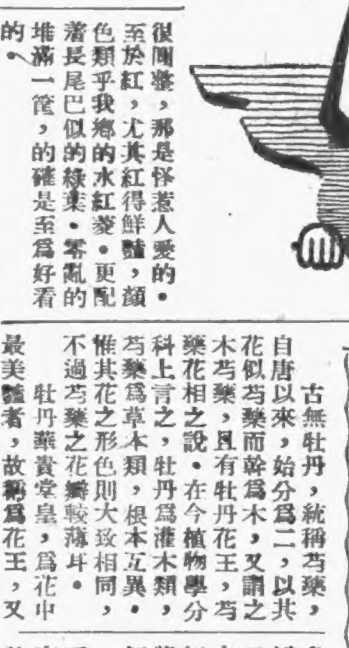 很圓整,那是怪惹人愛的。
至於紅,尤其紅得鮮豔,顏
色類乎我鄉的水紅菱。更配
着長尾巴似的綠葉。零亂的
堆滿一筐,的確是至爲好看
的。
古無牡丹,統稱芍藥,
自唐以來,始分爲二,以其
花似芍藥而幹爲木,又謂之
木芍藥,且有牡丹花王,芍
藥花相之說。在今植物學分
科上言之,牡丹爲灌木類,
芍藥爲草本類,根本互異。
惟其花之形色則大致相同,
不過芍藥之花瓣較薄耳。
牡丹華貴堂皇,爲花中
最美豔者,故稱爲花王,又